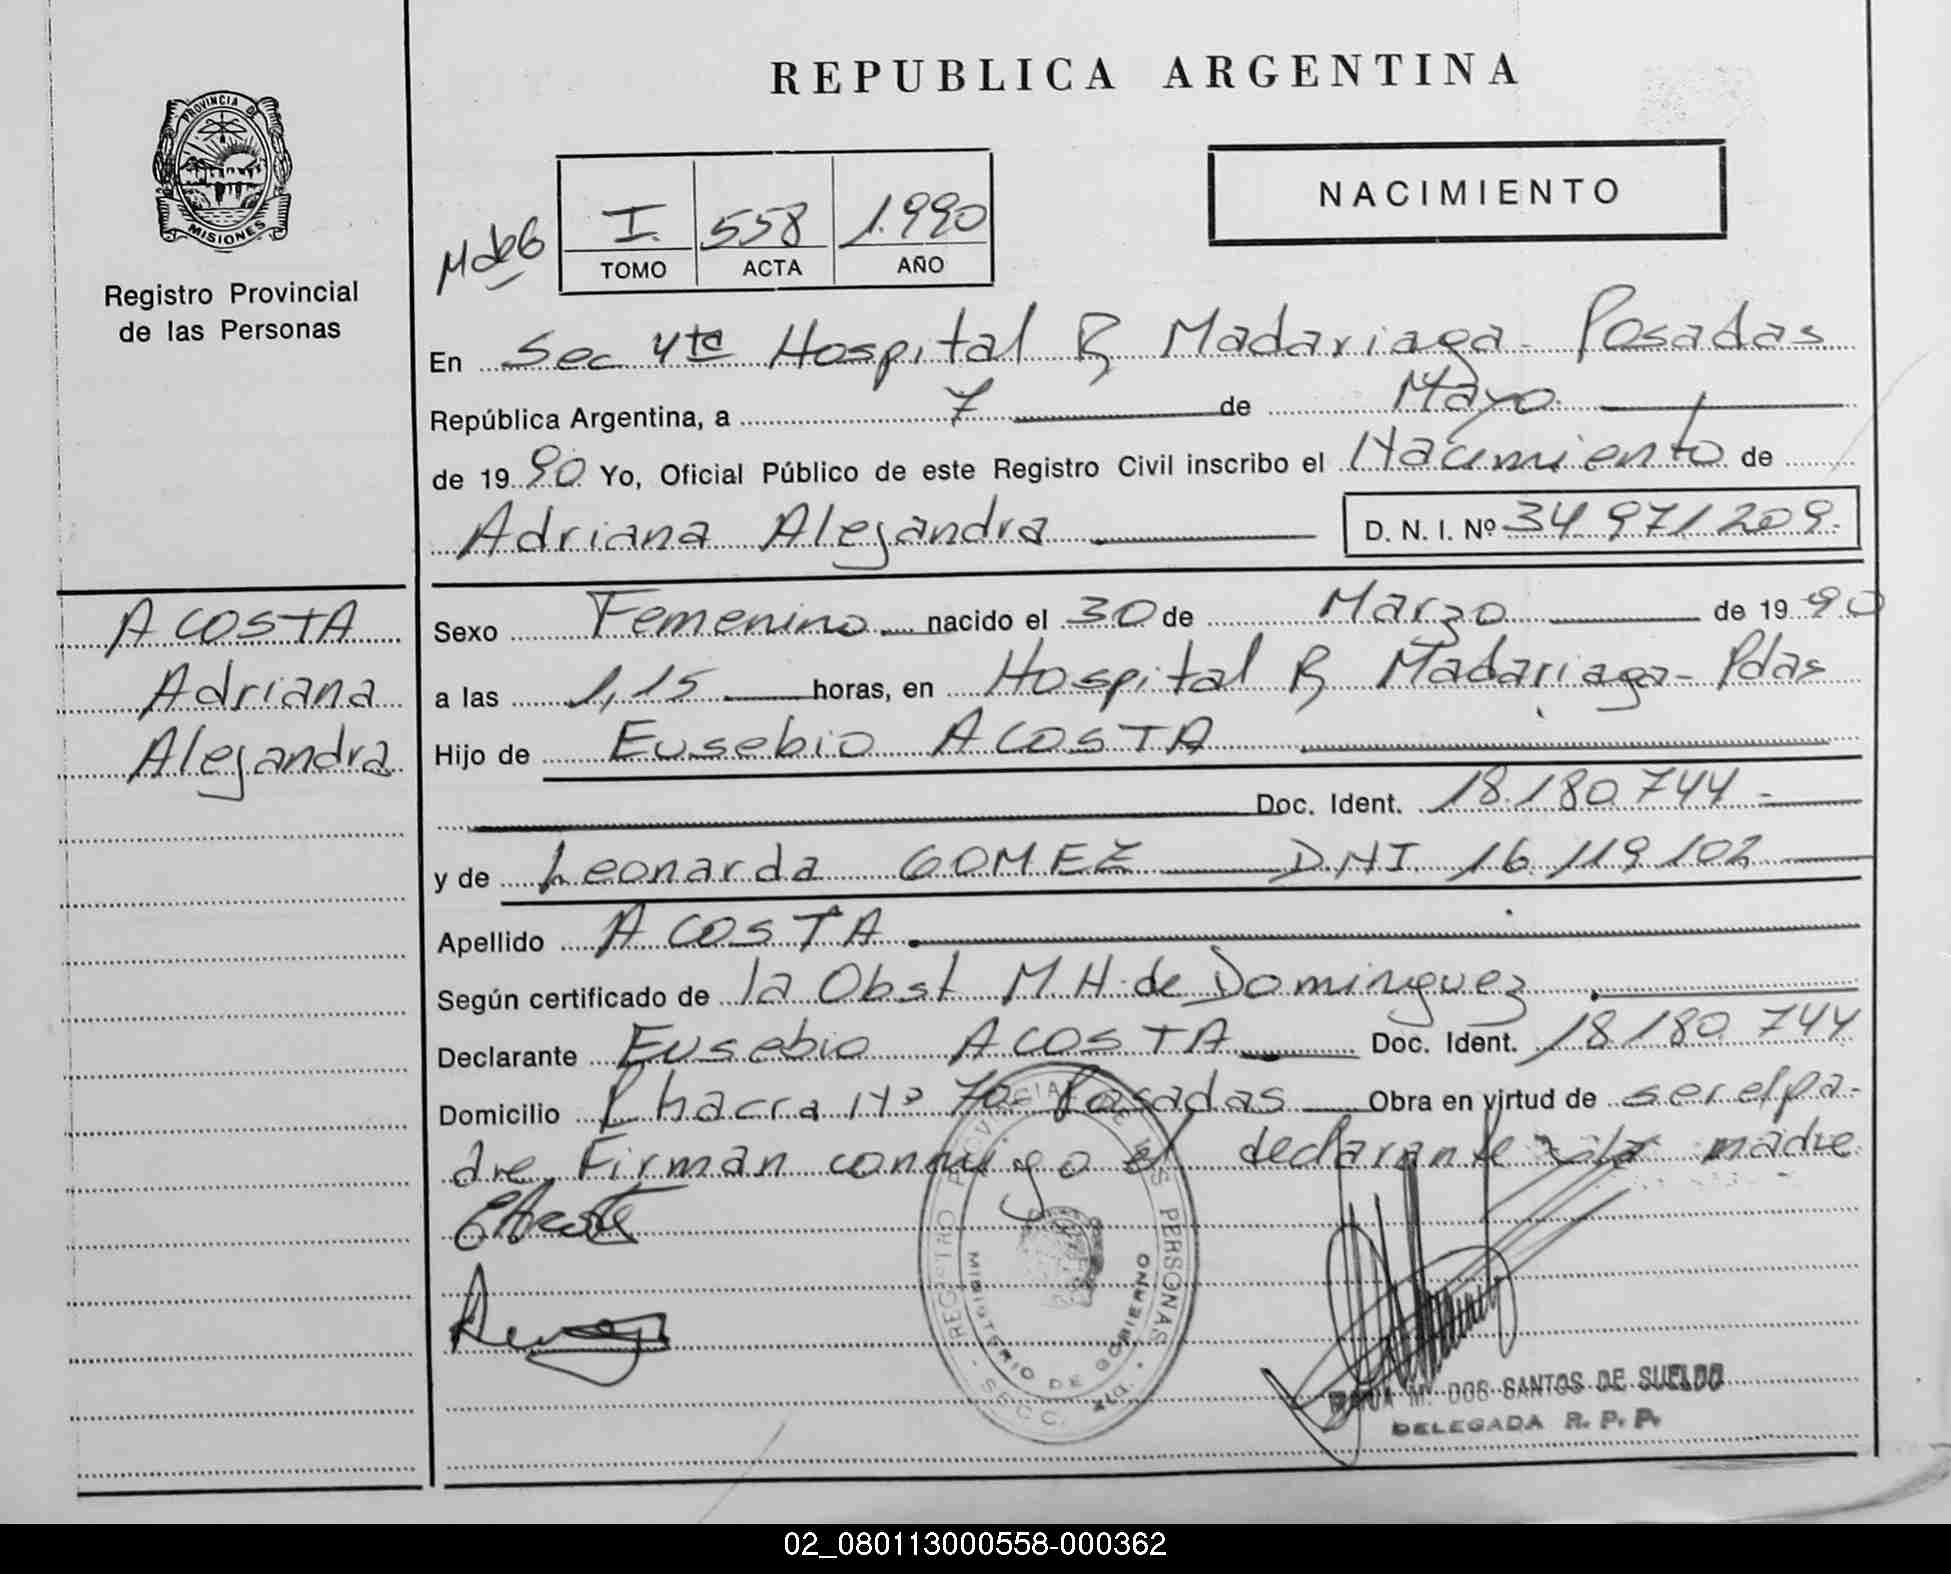 REPUBLICA ARGENTINA
PROVINCIA DE
MISIONES
Registro Provincial
de las Personas
NACIMIENTO
I. 558 1.990
TOMO ACTA AÑO
En Sec 4ta Hospital R Madariaga - Posadas
República Argentina, a 7 de Mayo
de 1990 Yo, Oficial Público de este Registro Civil inscribo el Nacimiento de
Adriana Alejandra D. N. I. Nº 34.971.209.
ACOSTA
Adriana
Alejandra
Sexo Femenino nacido el 30 de Marzo de 1990
a las 1,15 horas, en Hospital R Madariaga - Pdas
Hijo de Eusebio ACOSTA
Doc. Ident. 18.180.744 -
y de Leonarda GOMEZ D.N.I. 16.119.102
Apellido ACOSTA
Según certificado de la Obst M.H. de Dominguez
Declarante Eusebio ACOSTA Doc. Ident. 18.180.744
Domicilio Chacra Nº 70 - Posadas Obra en virtud de ser el pa-
dre Firman conmigo el declarante y la madre
REGISTRO PROVINCIAL DE LAS PERSONAS
MINISTERIO DE GOBIERNO
SECC. 4ta.
M. DOS SANTOS DE SUELDO
DELEGADA R. P. P.
02_080113000558-000362